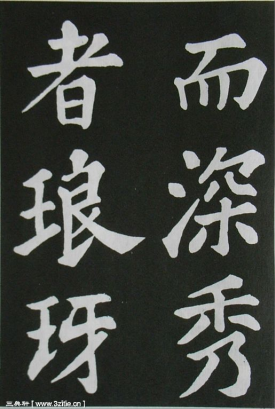 而深秀
者琅玡
三典轩【www.3ztie.cn】